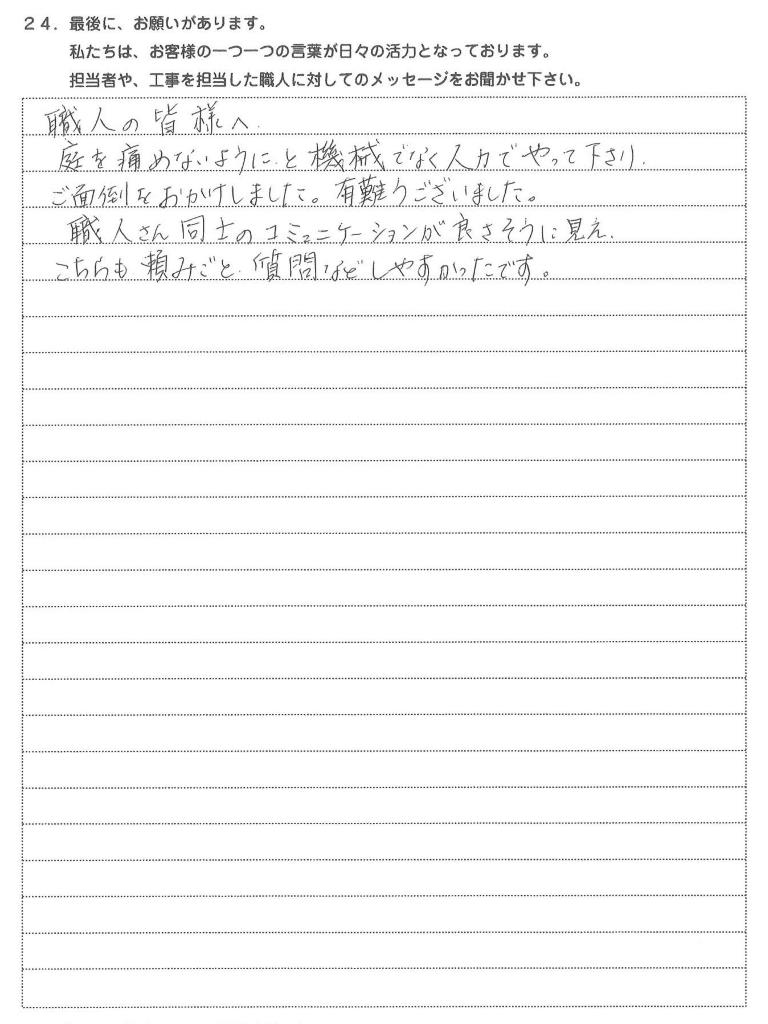 ２４．最後に、お願いがあります。
私たちは、お客様の一つ一つの言葉が日々の活力となっております。
担当者や、工事を担当した職人に対してのメッセージをお聞かせ下さい。
職人の皆様へ.
庭を痛めないように.と機械でなく人力でやって下さり.
ご面倒をおかけしました。有難うございました。
職人さん同士のコミュニケーションが良さそうに見え.
こちらも頼みごと.質問などしやすかったです。